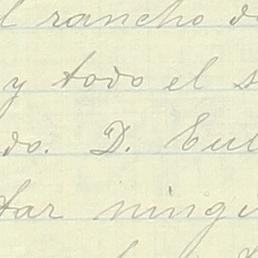 l rancho d
y todo el s
do. D. Eul
tar ningú